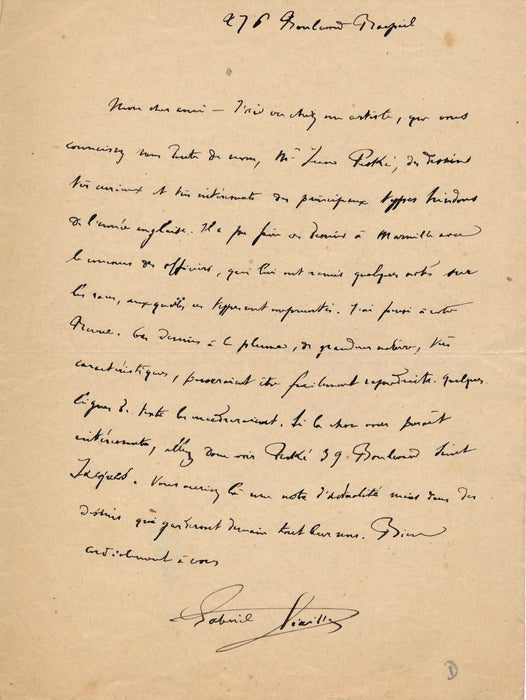 276 Boulevard Raspail
Mon cher ami – J'ai vu chez un artiste, que vous
connaissez sans doute de nom, Mr Jean Peské, des dessins
très curieux et très intéressants des principaux types hindous
de l'armée anglaise. Il a pu faire ces dessins à Marseille avec
le concours des officiers, qui lui ont remis quelques notes sur
les races, auxquelles ces types sont empruntés. J'ai pensé à votre
Revue. Ces dessins à la plume, de grandeur nature, très
caractéristiques, pourraient être facilement reproduits. Quelques
lignes de texte les encadreraient. Si la chose vous paraît
intéressante, allez donc voir Peské 39 Boulevard Saint
Jacques. Vous auriez là une note d'actualité mais dans des
dessins qui garderont demain tout leur sens. Bien
cordialement à vous
Gabriel Séailles
1